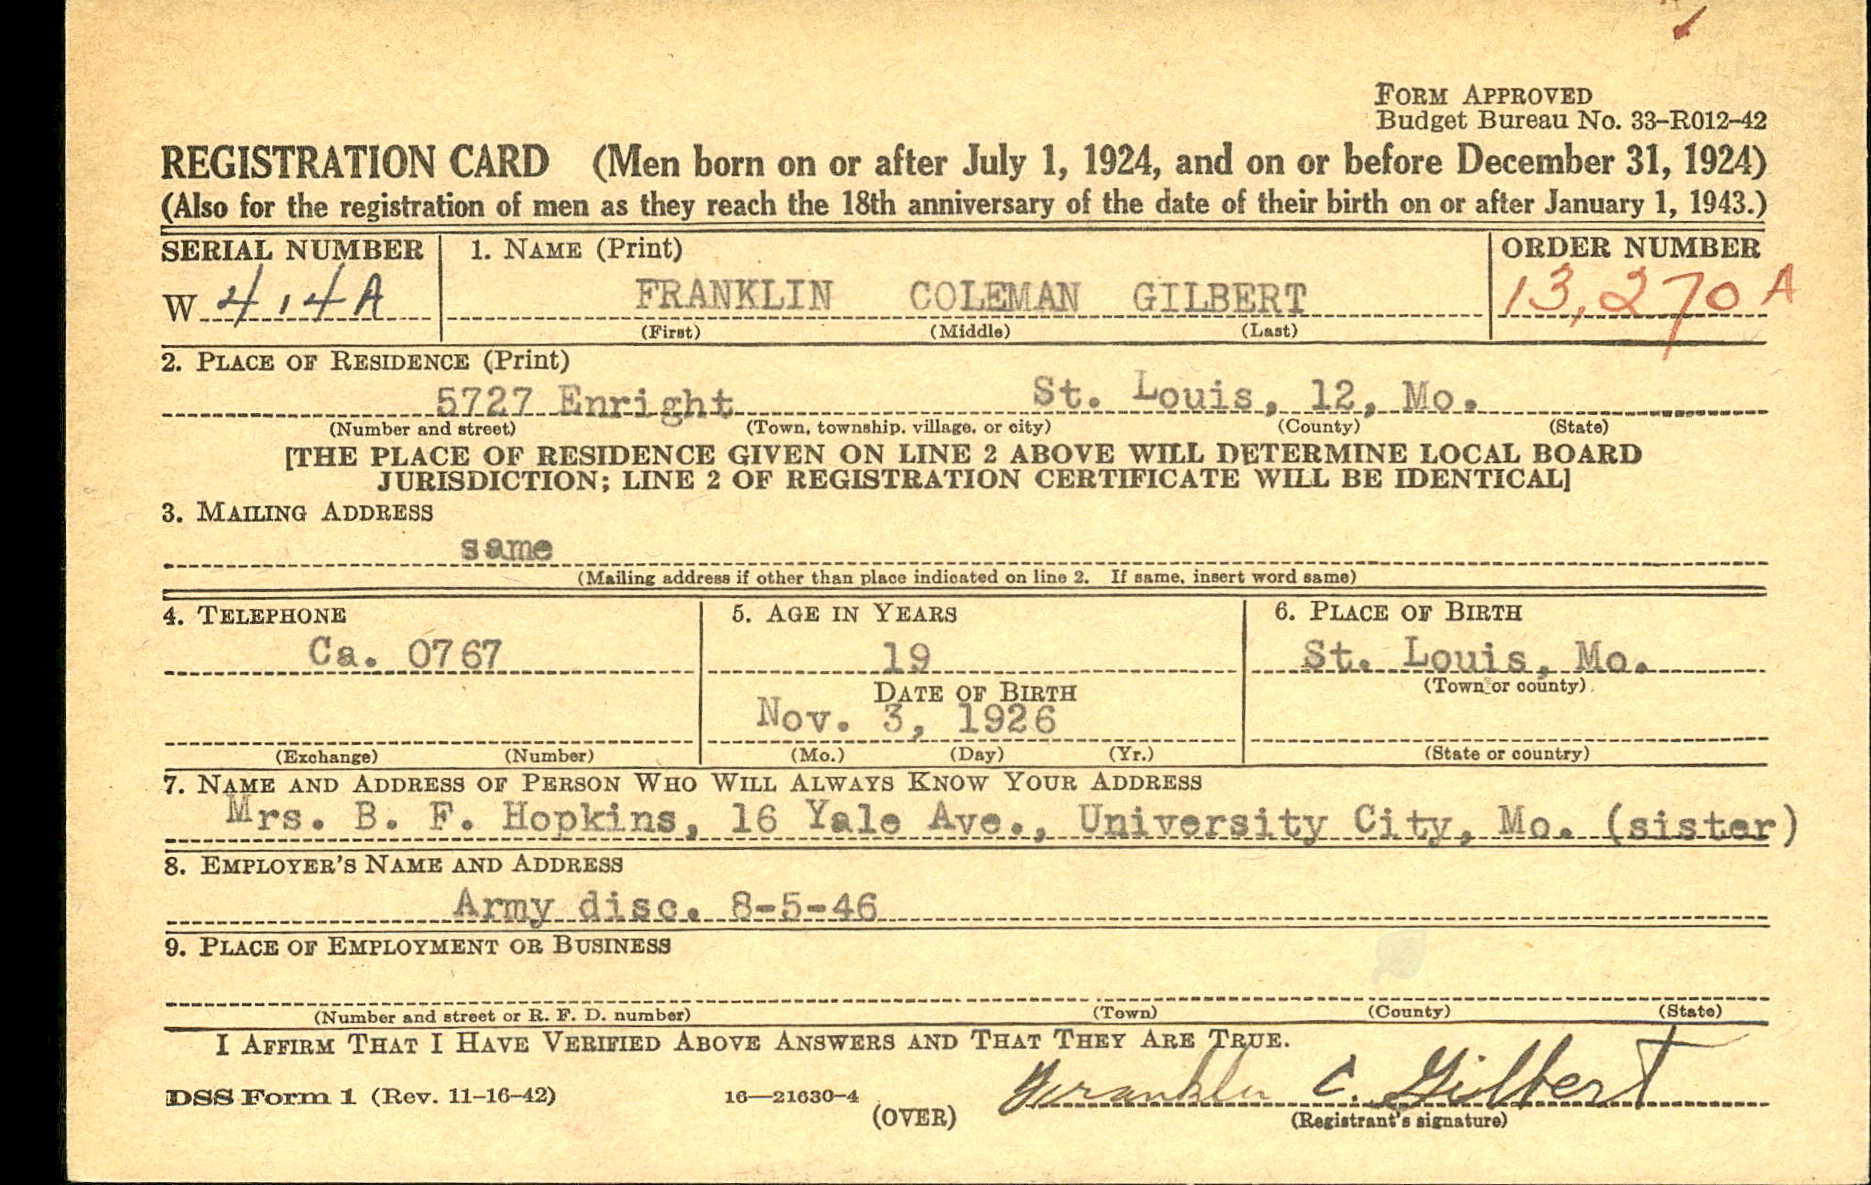 FORM APPROVED
Budget Bureau No. 33-R012-42
REGISTRATION CARD (Men born on or after July 1, 1924, and on or before December 31, 1924)
(Also for the registration of men as they reach the 18th anniversary of the date of their birth on or after January 1, 1943.)
SERIAL NUMBER 1. NAME (Print) ORDER NUMBER
W 414A FRANKLIN COLEMAN GILBERT 13,270 A
(First) (Middle) (Last)
2. PLACE OF RESIDENCE (Print)
5727 Enright St. Louis, 12, Mo.
(Number and street) (Town, township, village, or city) (County) (State)
[THE PLACE OF RESIDENCE GIVEN ON LINE 2 ABOVE WILL DETERMINE LOCAL BOARD
JURISDICTION; LINE 2 OF REGISTRATION CERTIFICATE WILL BE IDENTICAL]
3. MAILING ADDRESS
same
(Mailing address if other than place indicated on line 2. If same, insert word same)
4. TELEPHONE 5. AGE IN YEARS 6. PLACE OF BIRTH
Ca. 0767 19 St. Louis, Mo.
DATE OF BIRTH (Town or county)
Nov. 3, 1926
(Exchange) (Number) (Mo.) (Day) (Yr.) (State or country)
7. NAME AND ADDRESS OF PERSON WHO WILL ALWAYS KNOW YOUR ADDRESS
Mrs. B. F. Hopkins, 16 Yale Ave., University City, Mo. (sister)
8. EMPLOYER'S NAME AND ADDRESS
Army disc. 8-5-46
9. PLACE OF EMPLOYMENT OR BUSINESS
(Number and street or R. F. D. number) (Town) (County) (State)
I AFFIRM THAT I HAVE VERIFIED ABOVE ANSWERS AND THAT THEY ARE TRUE.
DSS Form 1 (Rev. 11-16-42) 16—21630-4 (OVER) Franklin C. Gilbert
(Registrant's signature)